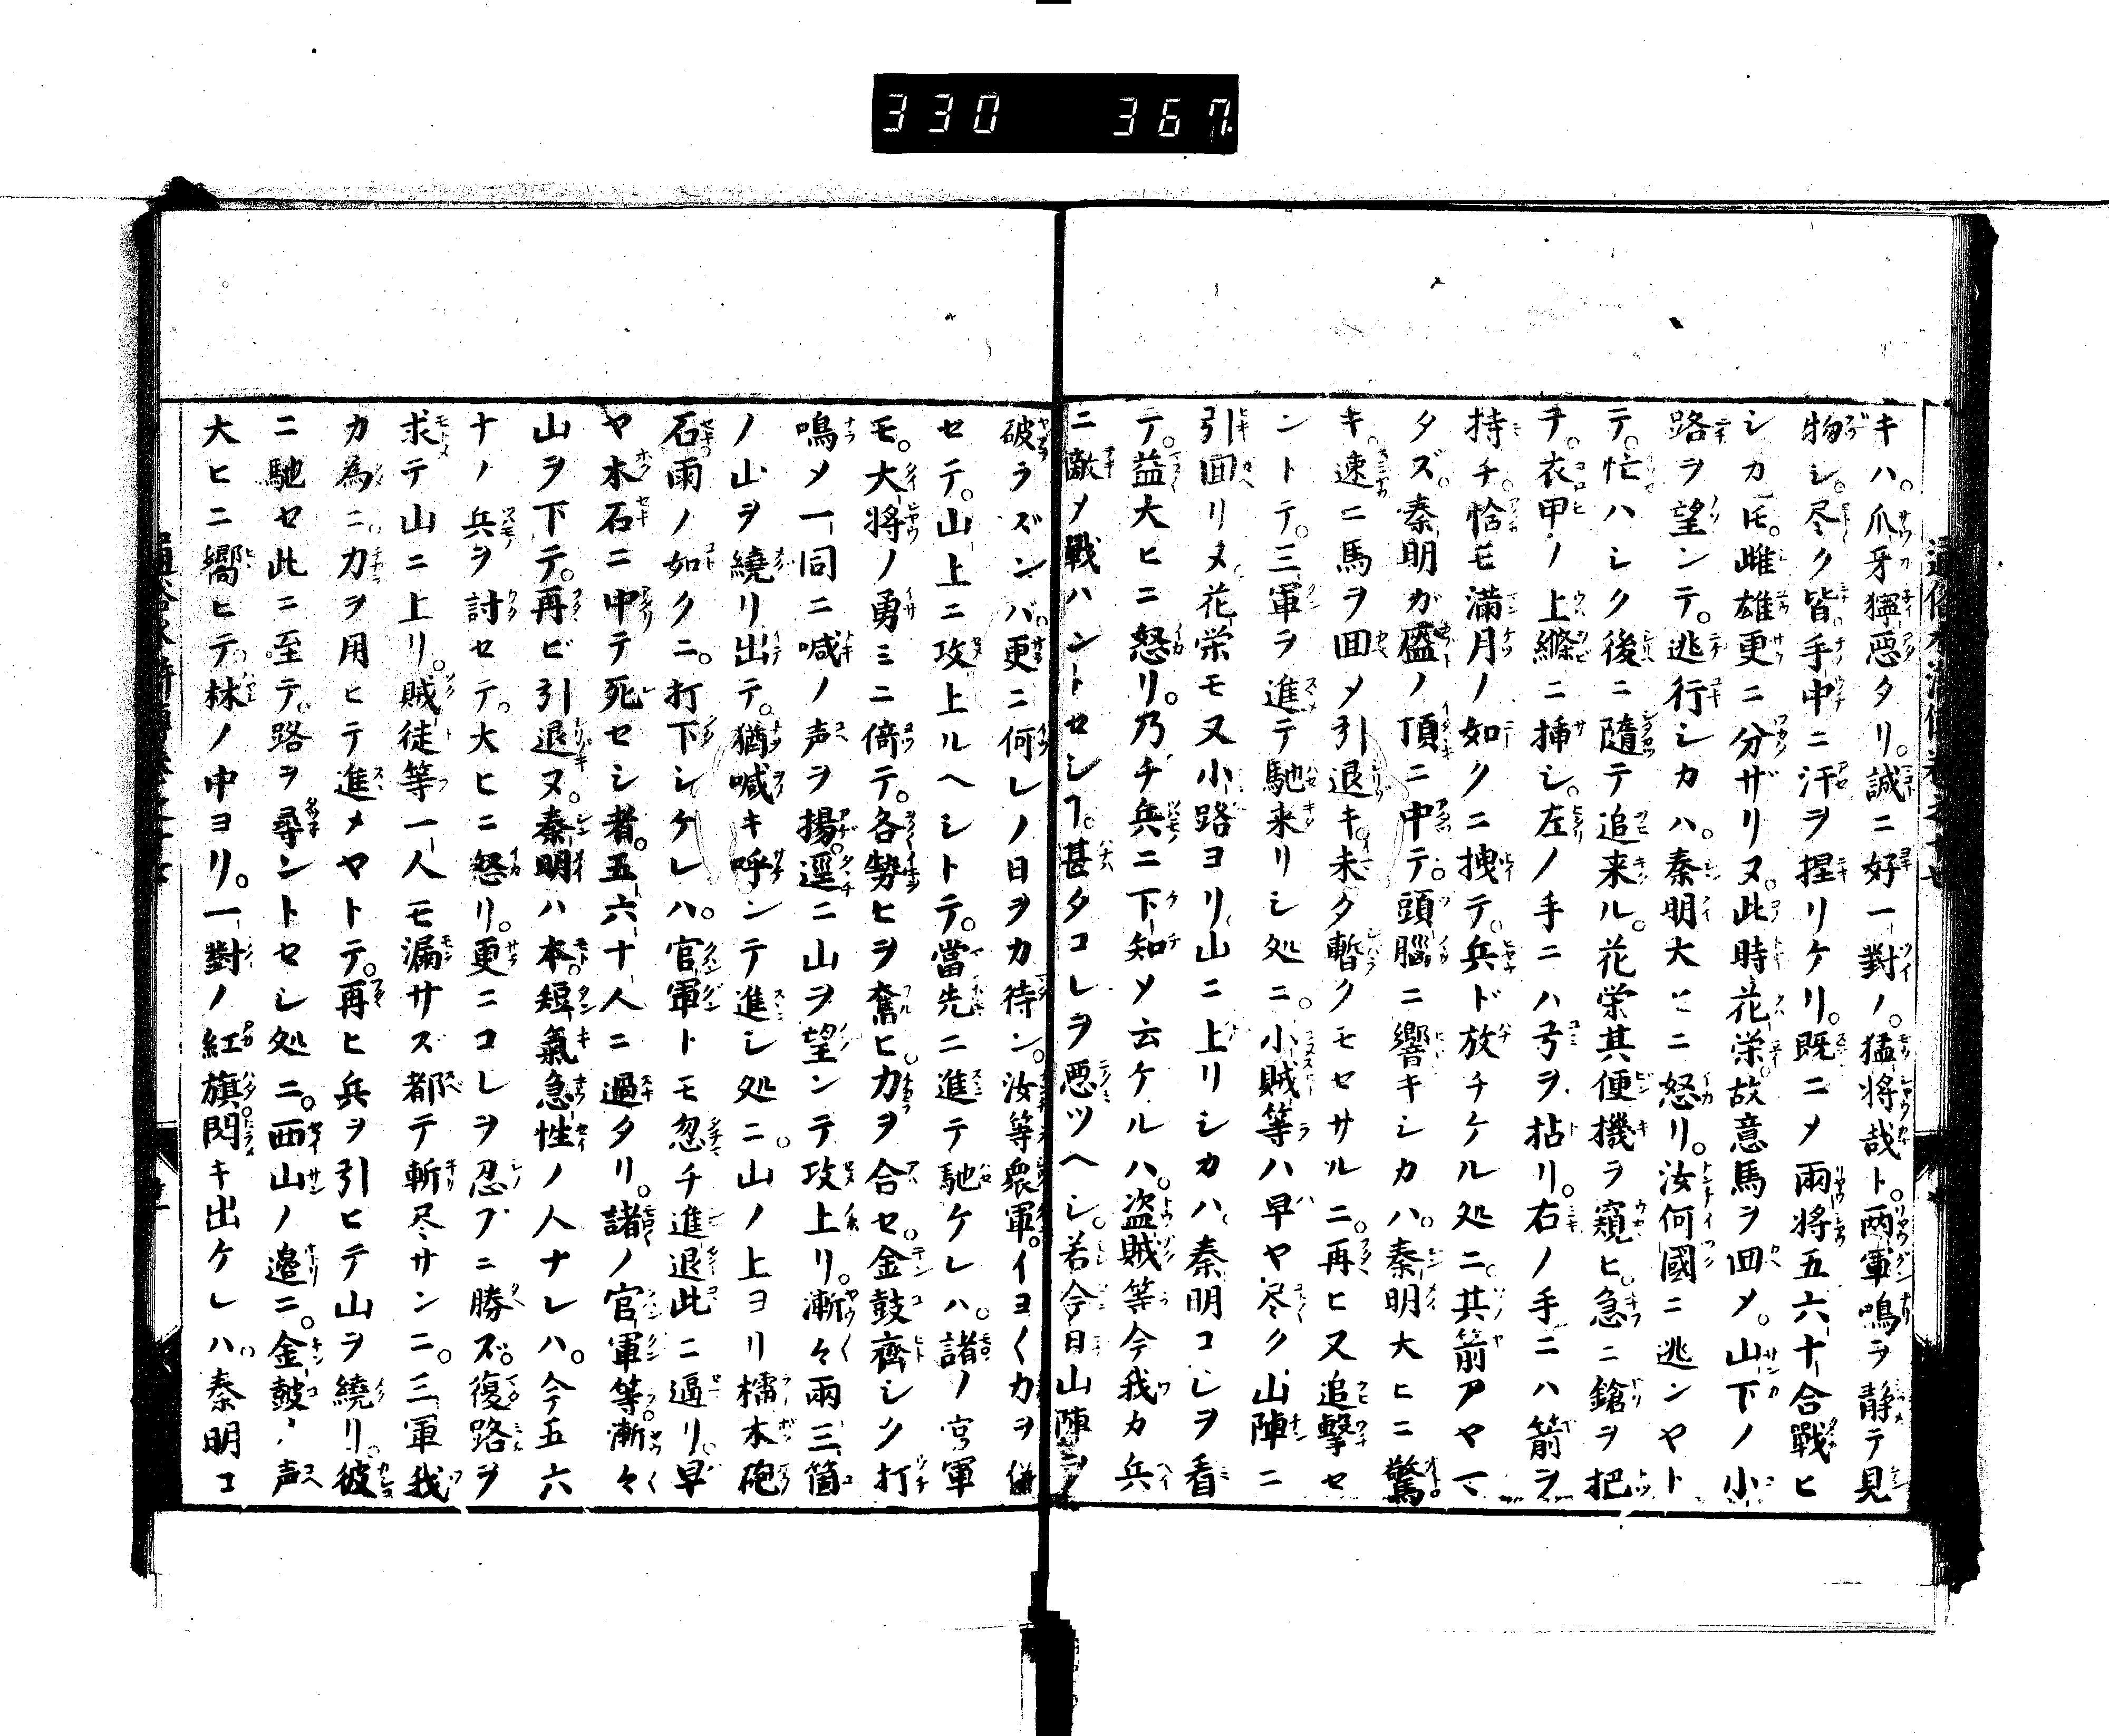 330 367
キハ。爪牙獰悪タリ。誠ニ好一對ノ。猛將哉ト。両軍鳴ヲ静テ見
物シ。尽ク皆手中ニ汗ヲ握リケリ。既ニメ両将五六十合戰ヒ
シカ𪜈。雌雄更ニ分ザリヌ。此時花栄故意馬ヲ回メ。山下ノ小
路ヲ望ンテ。逃行シカハ。秦明大ヒニ怒リ。汝何國ニ逃ンヤト
テ。忙ハシク後ニ隨テ追来ル。花栄其便機ヲ窺ヒ。急ニ鎗ヲ把
テ。衣甲ノ上縧ニ挿シ。左ノ手ニハ弓ヲ拈リ。右ノ手ニハ箭ヲ
持チ。恰モ滿月ノ如クニ拽テ。兵ド放チケル処ニ。其箭アヤマ
タズ。秦明ガ盔ノ頂ニ中テ。頭腦ニ響キシカハ。秦明大ヒニ驚
キ。速ニ馬ヲ回メ引退キ。未タ暫クモセサルニ。再ヒ又追擊セ
ントテ。三軍ヲ進テ馳来リシ処ニ。小賊等ハ早ヤ尽ク山陣ニ
引回リヌ。花栄モ又小路ヨリ。山ニ上リシカハ。秦明コレヲ看
テ。益大ヒニ怒リ。乃チ兵ニ下知メ云ケルハ。盗賊等今我カ兵
ニ敵メ戰ハントセシヿ。甚タコレヲ悪ツヘシ。若今日山陣ヲ
破ラズンバ。更ニ何レノ日ヲカ待ン。汝等衆軍。イヨ〱力ヲ併
セテ。山上ニ攻上ルヘシトテ。當先ニ進テ馳ケレハ。諸ノ官軍
モ。大將ノ勇ミニ倚テ。各勢ヒヲ奮ヒ。力ヲ合セ。金鼓齊シク打
鳴メ一同ニ喊ノ声ヲ揚。逕ニ山ヲ望ンテ攻上リ。漸々兩三箇
ノ山ヲ繞リ出テ。猶喊キ呼ンテ進シ処ニ。山ノ上ヨリ檑木砲
石雨ノ如クニ。打下シケレハ。官軍トモ忽チ進退此ニ逼リ。早
ヤ木石ニ中テ死セシ者。五六十人ニ過タリ。諸ノ官軍等漸々
山ヲ下テ。再ビ引退ヌ。秦明ハ本短氣急性ノ人ナレハ。今五六
十ノ兵ヲ討セテ。大ヒニ怒リ。更ニコレヲ忍ブニ勝ズ。復路ヲ
求テ山ニ上リ。賊徒等一人モ漏サズ都テ斬尽サンニ。三軍我
カ為ニ。力ヲ用ヒテ進メヤトテ。再ヒ兵ヲ引ヒテ山ヲ繞リ。彼
ニ馳セ此ニ至テ。路ヲ尋ントセシ処ニ。西山ノ邉ニ。金鼓ノ声
大ヒニ響ヒテ。林ノ中ヨリ。一對ノ紅旗閃キ出ケレハ。秦明コ